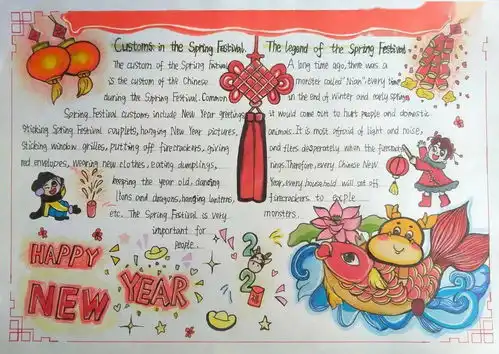 Customs in the Spring Festival.
The custom of the Spring Festival
is the custom of the Chinese
during the Spring Festival. Common
Spring Festival customs include New Year greetings
sticking Spring Festival couplets, hanging New Year pictures,
sticking window grilles, putting off firecrackers, giving
red envelopes, wearing new clothes, eating dumplings,
keeping the year old, dancing
lions and dragons, hanging lanterns,
etc. The Spring Festival is very
important for
people.
The legend of the Spring Festival.
A long time ago, there was a
monster called "Nian" every time
in the end of winter and early spring
it would come out to hurt people and domestic
animals. It is most afraid of light and noise,
and flees desperately when the firecracker
rings. Therefore, every Chinese New
Year, every household will set off
firecrackers to exple
monsters.
HAPPY
NEW
YEAR